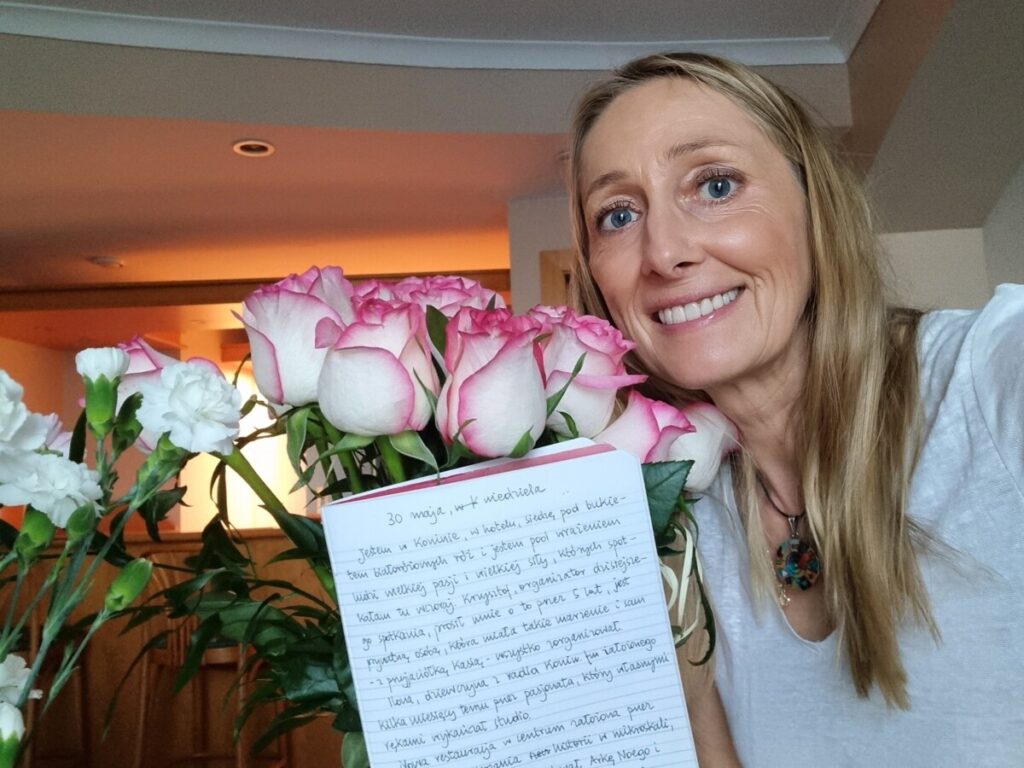 30 maja, w niedziela
Jestem w Koninie, w hotelu, siedzę pod bukie-
tem białoróżowych róż i jestem pod wrażeniem
ludzi wielkiej pasji i wielkiej siły, których spot-
kałam tu wczoraj. Krzysztof, organizator dzisiejsze-
go spotkania, prosił mnie o to przez 5 lat, jest
prywatną osobą, która miała takie marzenie i sam
- z przyjaciółką Kasią - wszystko zorganizował
Ilona, dziewczyna z radia Konin fm założonego
kilka miesięcy temu przez pasjonata, który własnymi
rękami wykańczał studio.
restauracja w centrum założona przez
historii w mikroskali,
Arkę Noego i